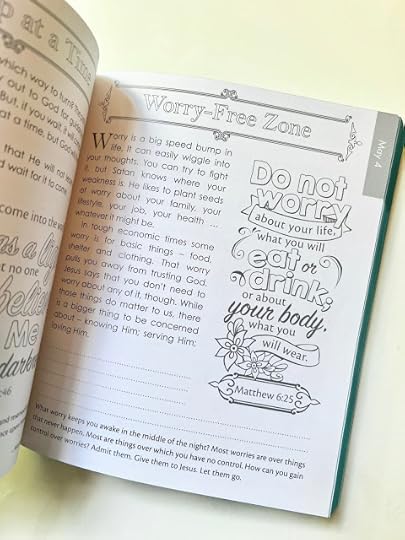 p at a Time
which way to turn?
out to God for
But, if you wait
at a time, but God
that He will not
wait for it to
come into the
as a li
no one
believe
Me
darkn
:46
Worry-Free Zone
May 4
Worry is a big speed bump in
life. It can easily wiggle into
your thoughts. You can try to fight
it, but Satan knows where your
weakness is. He likes to plant seeds
of worry about your family, your
lifestyle, your job, your health ...
whatever it might be.
In tough economic times some
worry is for basic things – food,
shelter and clothing. That worry
pulls you away from trusting God.
Jesus says that you don't need to
worry about any of it, though. While
those things do matter to us, there
is a bigger thing to be concerned
about – knowing Him; serving Him;
loving Him.
Do not
worry
about your life,
what you will
eat or
drink;
or about
your body,
what you
will wear.
Matthew 6:25
What worry keeps you awake in the middle of the night? Most worries are over things
that never happen. Most are things over which you have no control. How can you gain
control over worries? Admit them. Give them to Jesus. Let them go.